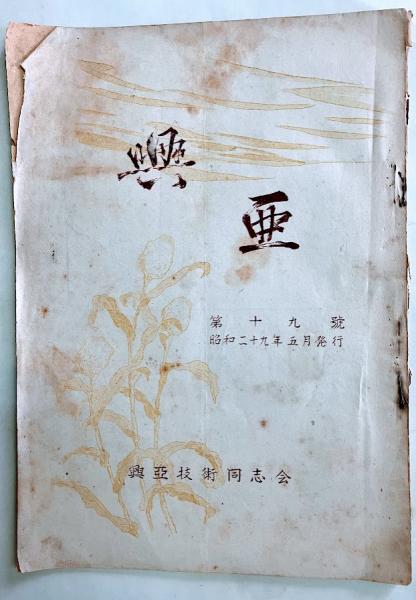 興亜
第十九號
昭和二十九年五月発行
興亞技術同志会